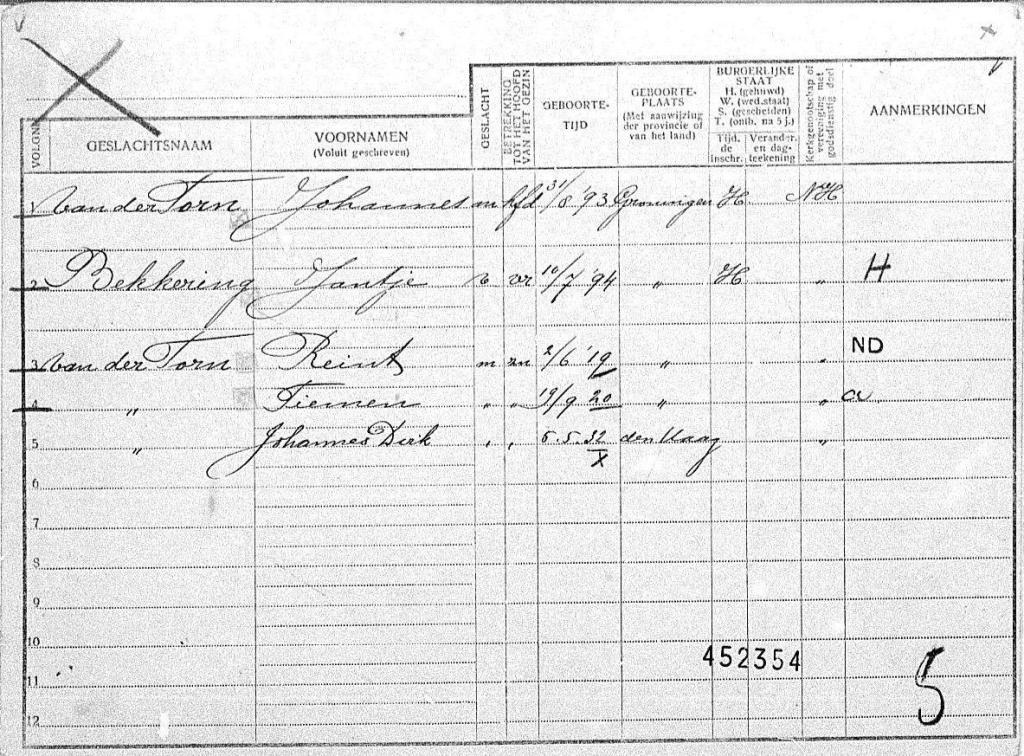 VOLGNR
GESLACHTSNAAM
VOORNAMEN
(Voluit geschreven)
GESLACHT
BETREKKING TOT HET HOOFD VAN HET GEZIN
GEBOORTE-TIJD
GEBOORTE-PLAATS
(Met aanwijzing der provincie of van het land)
BURGERLIJKE STAAT
H. (gehuwd)
W. (wed.staat)
S. (gescheiden)
T. (ontb. na 5 j.)
Tijd. de inschr.
Verander. en dag-teekening
Kerkgenootschap of vereeniging met godsdienstig doel
AANMERKINGEN
1 van der Torn Johannes m hfd 31/8 '93 Groningen H NH
2 Bekkering Jantje v vr 10/7 '94 " H " H
3 van der Torn Reint m zn 2/6 '19 " " ND
4 " Tiemen " " 19/9 20 " " a
5 " Johannes Dirk " " 6.5.32 den Haag "
X
6
7
8
9
10
452354
11
5
12